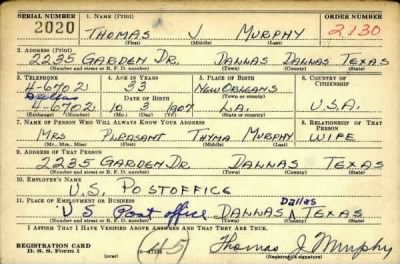 SERIAL NUMBER 1. NAME (Print) ORDER NUMBER
2020 THOMAS J MURPHY 2130
(First) (Middle) (Last)
2. ADDRESS (Print)
2235 GARDEN DR. DALLAS DALLAS TEXAS
(Number and street or R. F. D. number) (Town) (County) (State)
3. TELEPHONE 4. AGE IN YEARS 5. PLACE OF BIRTH 6. COUNTRY OF CITIZENSHIP
4-6702 33 NEW ORLEANS
Dallas DATE OF BIRTH (Town or county)
4-6702 10 3 1907 LA. U.S.A.
(Exchange) (Number) (Mo.) (Day) (Yr.) (State or country)
7. NAME OF PERSON WHO WILL ALWAYS KNOW YOUR ADDRESS 8. RELATIONSHIP OF THAT PERSON
MRS PLEASANT THYMA MURPHY WIFE
(Mr., Mrs., Miss) (First) (Middle) (Last)
9. ADDRESS OF THAT PERSON
2235 GARDEN DR. DALLAS TEXAS
(Number and street or R. F. D. number) (Town) (County) (State)
10. EMPLOYER'S NAME
U.S. POSTOFFICE
11. PLACE OF EMPLOYMENT OR BUSINESS Dallas
US Post office DALLAS TEXAS
(Number and street or R. F. D. number) (Town) (County) (State)
I AFFIRM THAT I HAVE VERIFIED ABOVE ANSWERS AND THAT THEY ARE TRUE.
REGISTRATION CARD
D. S. S. Form 1 (over) (45) Thomas J Murphy
(Registrant's signature)